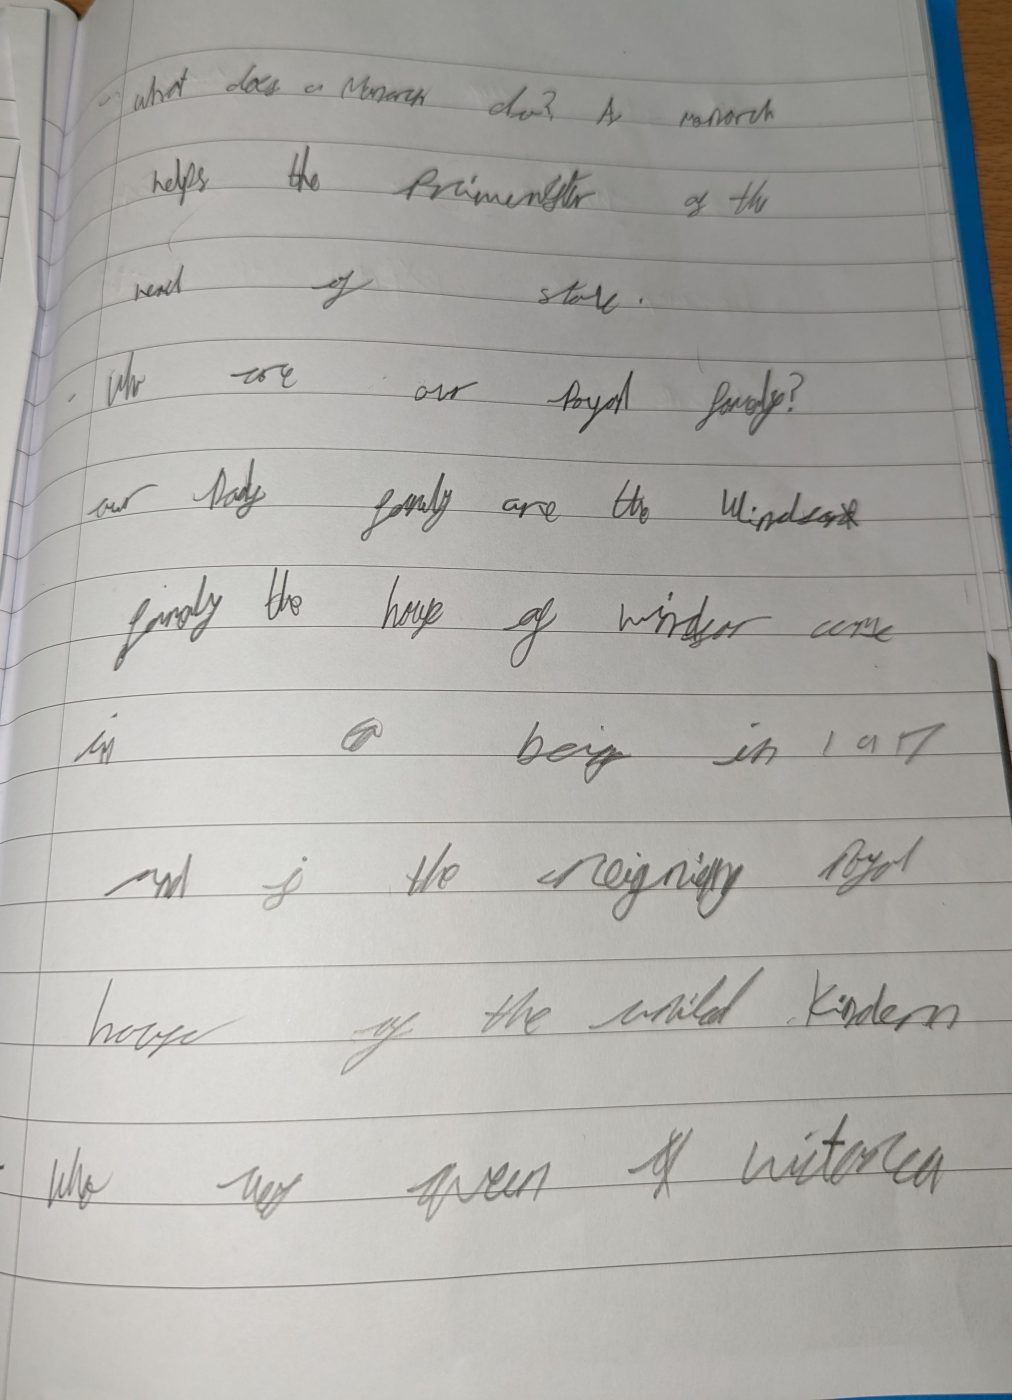 what does a Monarch do? A monarch
helps the Primenister of the
head of state.
Who are our Royal family?
our family are the Windsor
family the house of windsor came
in being in 1917
and is the reigning Royal
house of the united Kindem
Who was queen victorea